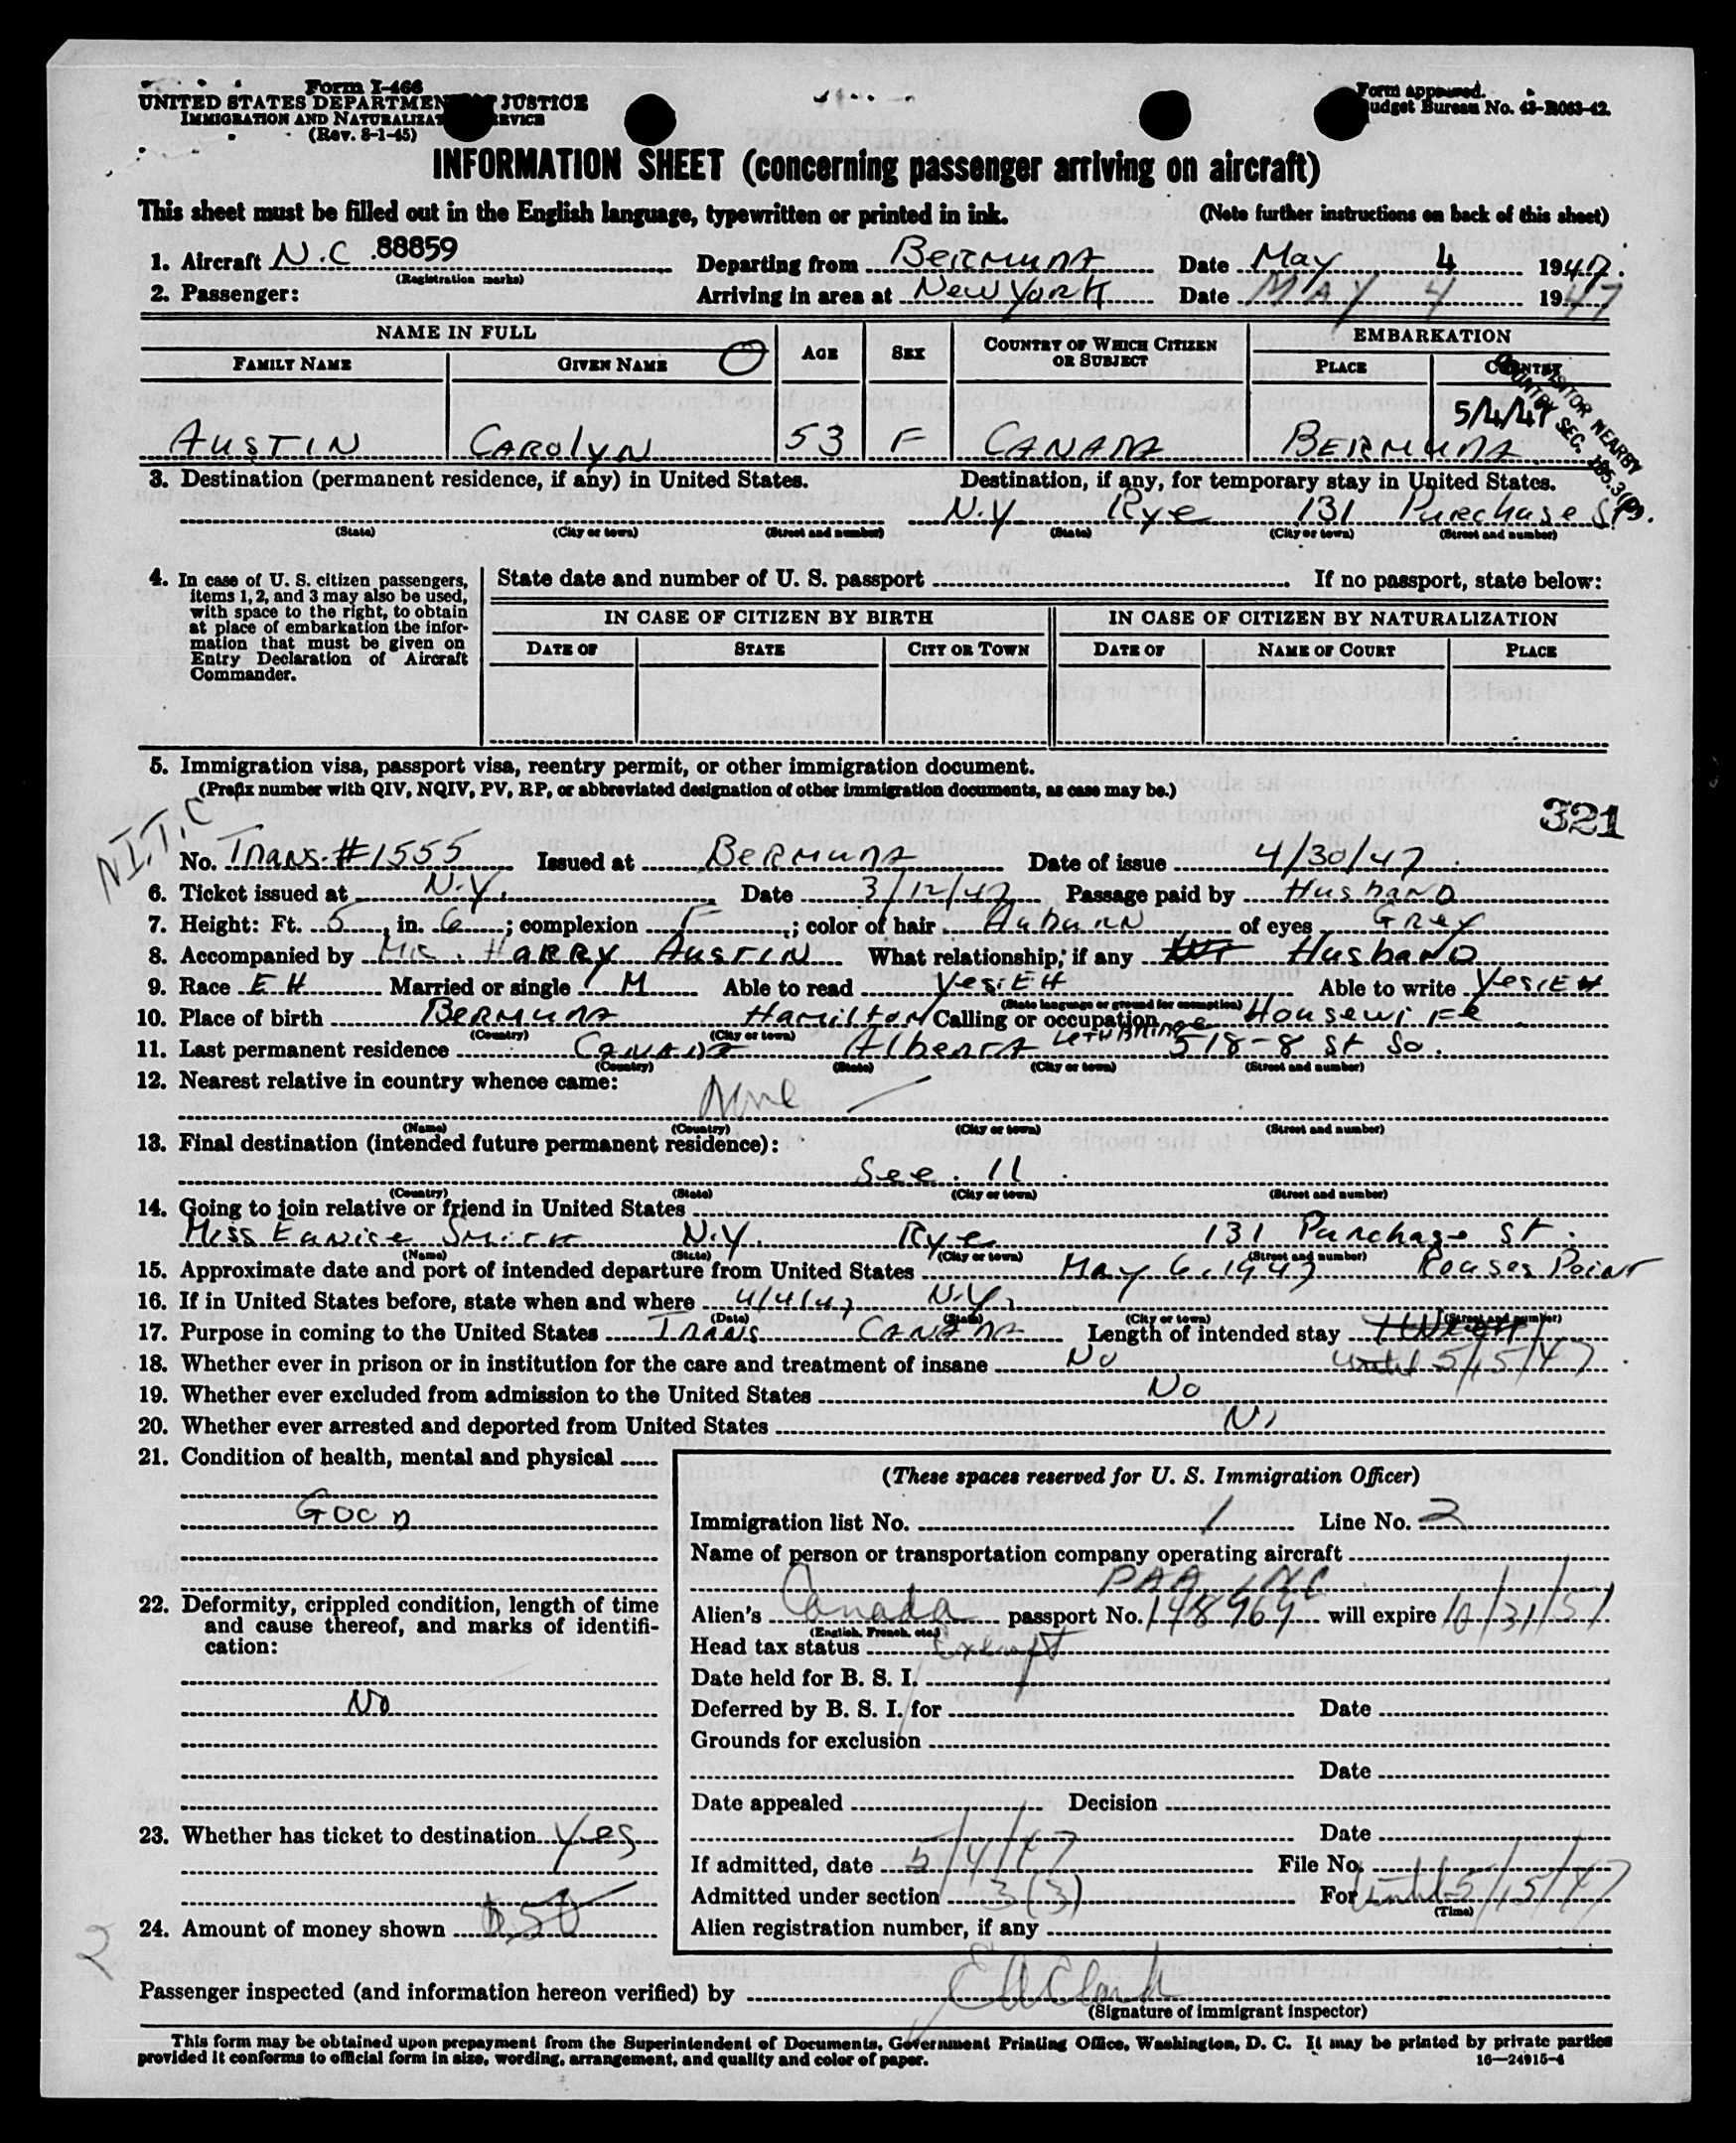 Form I-466
UNITED STATES DEPARTMENT JUSTICE
IMMIGRATION AND NATURALIZAT SERVICE
(Rev. 8-1-45)
Form approved.
Budget Bureau No. 43-R063-42.
INFORMATION SHEET (concerning passenger arriving on aircraft)
This sheet must be filled out in the English language, typewritten or printed in ink. (Note further instructions on back of this sheet)
1. Aircraft N.C. 88859 Departing from Bermuda Date May 4 1947.
(Registration marks)
2. Passenger: Arriving in area at New York Date MAY 4 1947
NAME IN FULL AGE SEX COUNTRY OF WHICH CITIZEN OR SUBJECT EMBARKATION
FAMILY NAME GIVEN NAME PLACE COUNTRY
VISITOR NEARBY
COUNTRY SEC. 165.3(B).
5/4/47
AUSTIN CAROLYN 53 F CANADA BERMUDA
3. Destination (permanent residence, if any) in United States. Destination, if any, for temporary stay in United States.
N.Y Rye 131 Purchase St.
(State) (City or town) (Street and number) (State) (City or town) (Street and number)
4. In case of U. S. citizen passengers, items 1, 2, and 3 may also be used, with space to the right, to obtain at place of embarkation the information that must be given on Entry Declaration of Aircraft Commander.
State date and number of U. S. passport If no passport, state below:
IN CASE OF CITIZEN BY BIRTH IN CASE OF CITIZEN BY NATURALIZATION
DATE OF STATE CITY OR TOWN DATE OF NAME OF COURT PLACE
5. Immigration visa, passport visa, reentry permit, or other immigration document.
(Prefix number with QIV, NQIV, PV, RP, or abbreviated designation of other immigration documents, as case may be.)
321
N.I.T.C
No. Trans. #1555 Issued at BERMUDA Date of issue 4/30/47
6. Ticket issued at N.Y. Date 3/12/47 Passage paid by Husband
7. Height: Ft. 5, in. 6; complexion F; color of hair Auburn of eyes Grey
8. Accompanied by Mr. HARRY AUSTIN What relationship, if any Husband
9. Race EH Married or single M Able to read Yes. EH Able to write Yes. EH
(State language or ground for exemption)
10. Place of birth BERMUDA Hamilton Calling or occupation Housewife
(Country) (City or town)
11. Last permanent residence CANADA Alberta Lethbridge 518-8 St So.
(Country) (State) (City or town) (Street and number)
12. Nearest relative in country whence came:
None
(Name) (Country) (City or town) (Street and number)
13. Final destination (intended future permanent residence):
See. 11
(Country) (State) (City or town) (Street and number)
14. Going to join relative or friend in United States
Miss Eunice Smith N.Y. Rye 131 Purchase St.
(Name) (State) (City or town) (Street and number)
15. Approximate date and port of intended departure from United States May 6. 1947 Rouses Point
16. If in United States before, state when and where 4/4/47 N.Y.
(Date) (State) (City or town) (Street and number)
17. Purpose in coming to the United States TRANS CANADA Length of intended stay
18. Whether ever in prison or in institution for the care and treatment of insane No until 5/15/47
19. Whether ever excluded from admission to the United States No
20. Whether ever arrested and deported from United States No
21. Condition of health, mental and physical
Good
22. Deformity, crippled condition, length of time and cause thereof, and marks of identification:
No
23. Whether has ticket to destination Yes
24. Amount of money shown $50
2
(These spaces reserved for U. S. Immigration Officer)
Immigration list No. 1 Line No. 2
Name of person or transportation company operating aircraft
PAA. INC
Alien's Canada passport No. 148969 will expire 10/31/51
(English, French, etc.)
Head tax status Exempt
Date held for B. S. I.
Deferred by B. S. I. for Date
Grounds for exclusion
Date
Date appealed Decision
Date
If admitted, date 5/4/47 File No.
Admitted under section 3(3) For until 5/15/47
(Time)
Alien registration number, if any
Passenger inspected (and information hereon verified) by
(Signature of immigrant inspector)
This form may be obtained upon prepayment from the Superintendent of Documents, Government Printing Office, Washington, D. C. It may be printed by private parties
provided it conforms to official form in size, wording, arrangement, and quality and color of paper. 16—24915-4